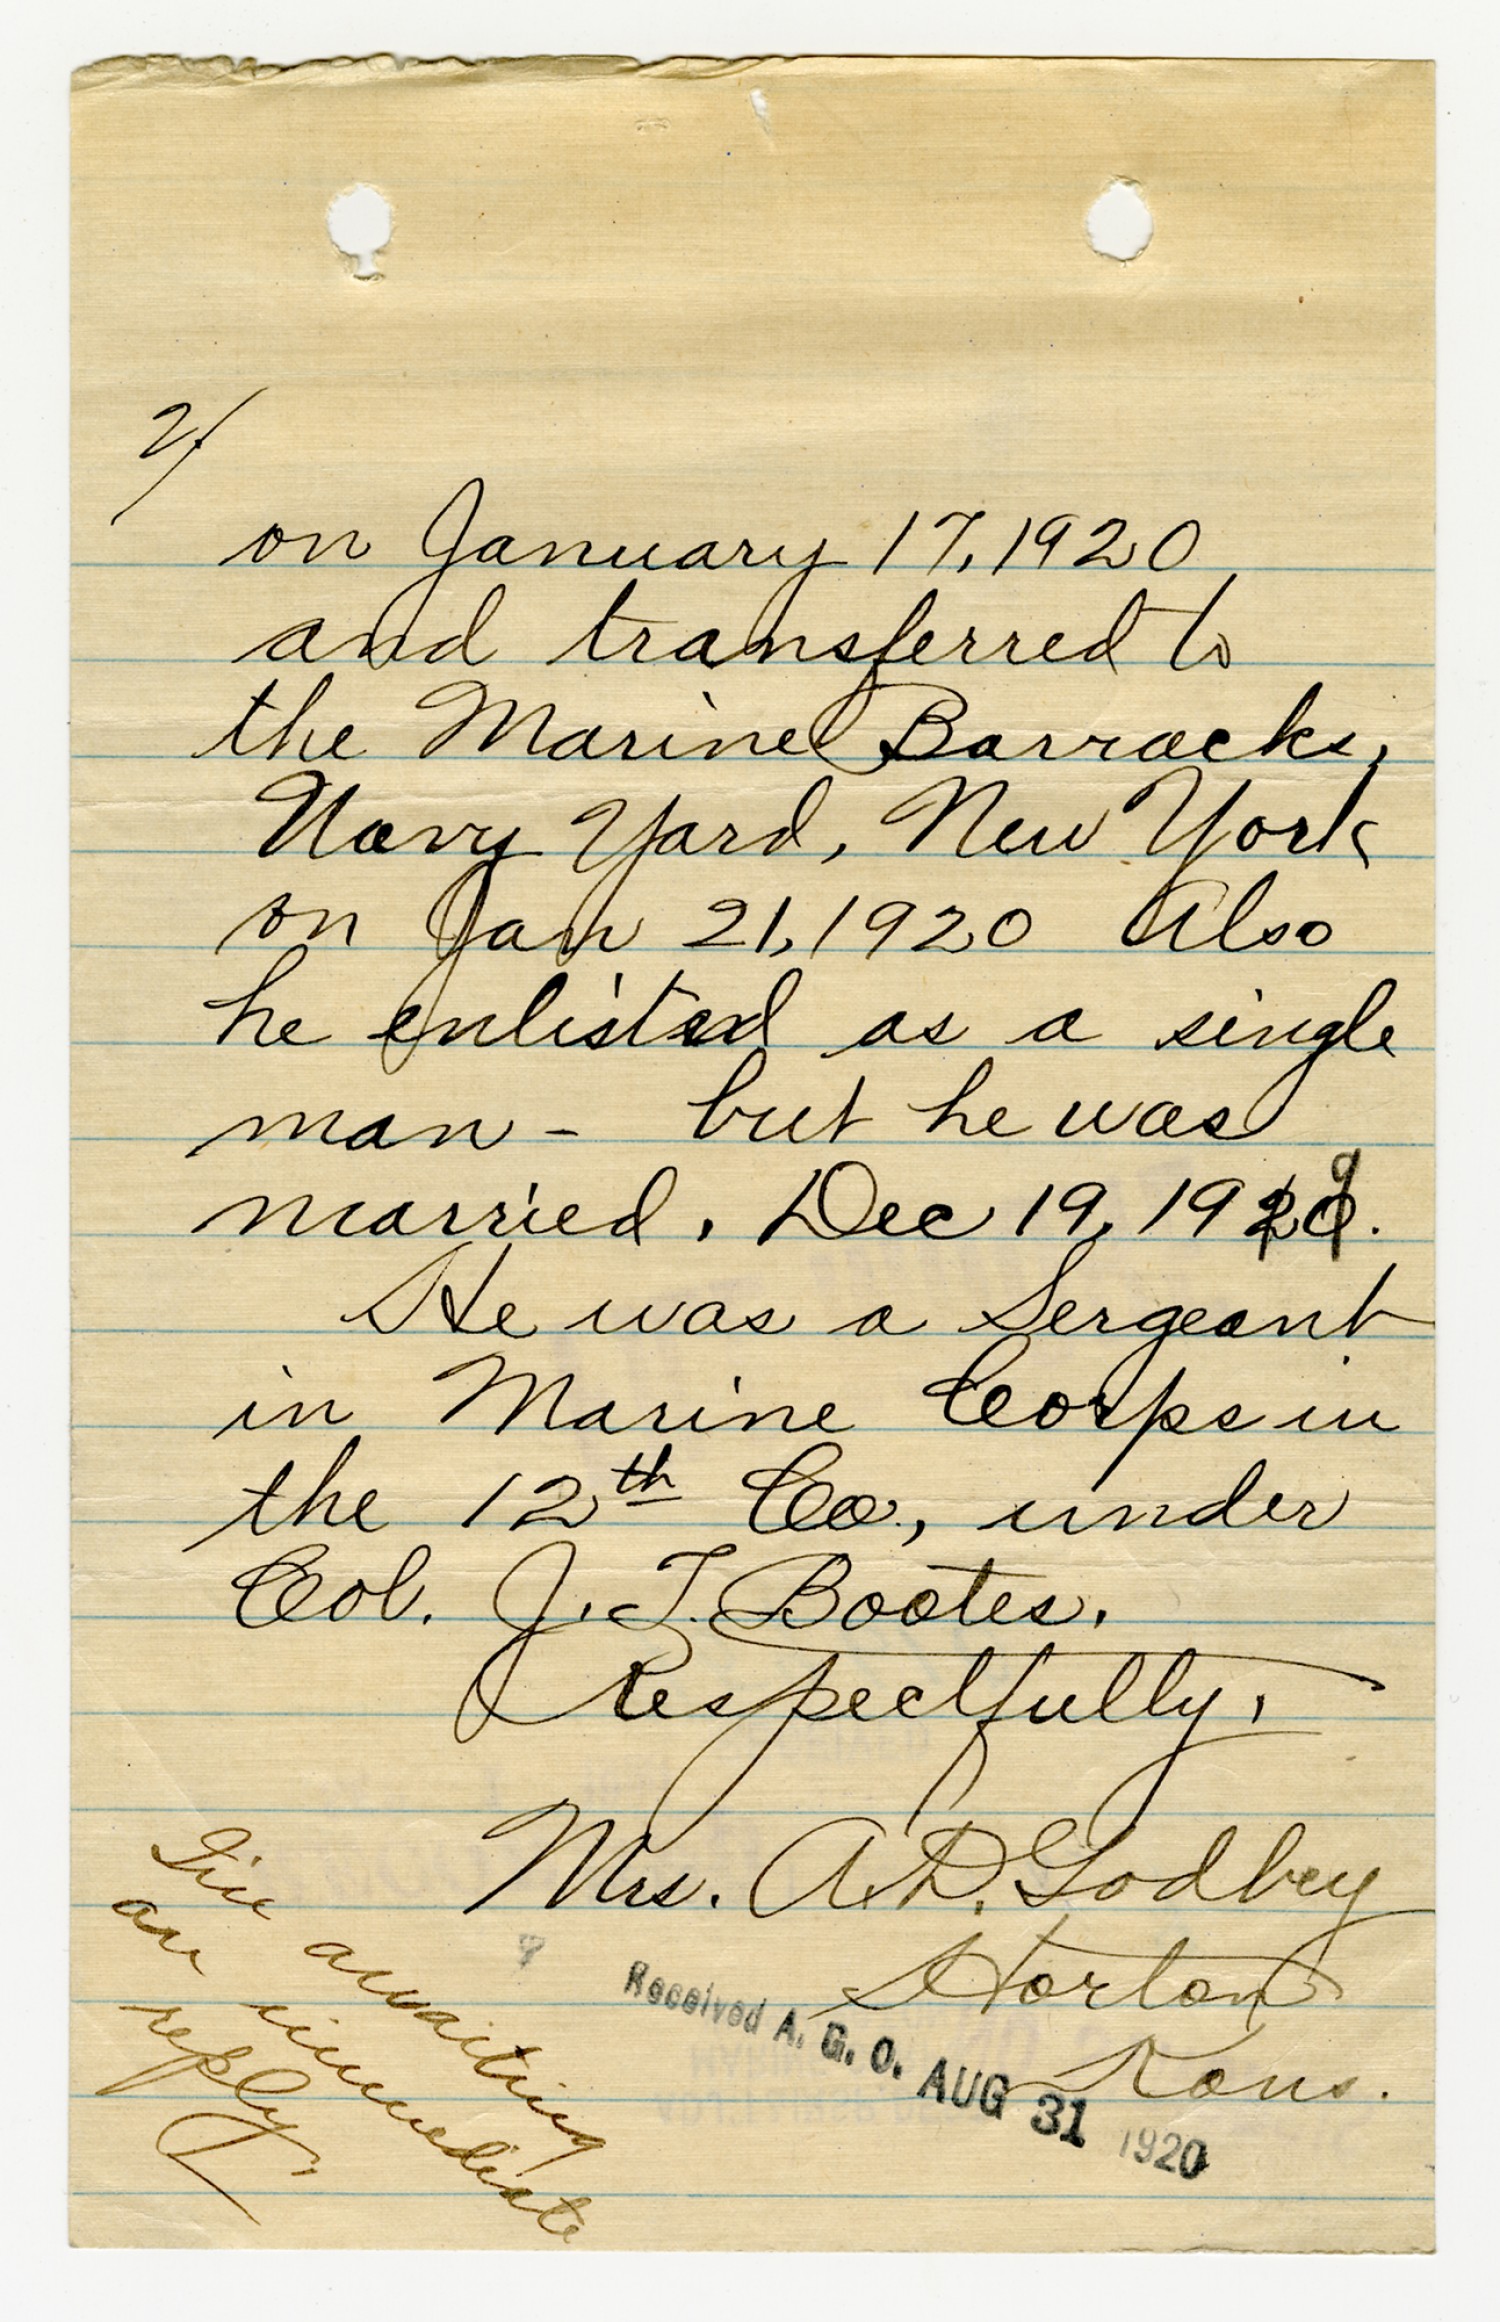 2/
on January 17, 1920
and transferred to
the Marine Barracks,
Navy Yard, New York
on Jan 21, 1920 Also
he enlisted as a single
man - but he was
married. Dec 19, 1919.
He was a Sergeant
in Marine Corps in
the 12th Co., under
Col. J. T. Bootes.
Respectfully,
Mrs. A. D. Godbey
Horton
Kans.
I'm awaiting
an immediate
reply
Received A. G. O. AUG 31 1920